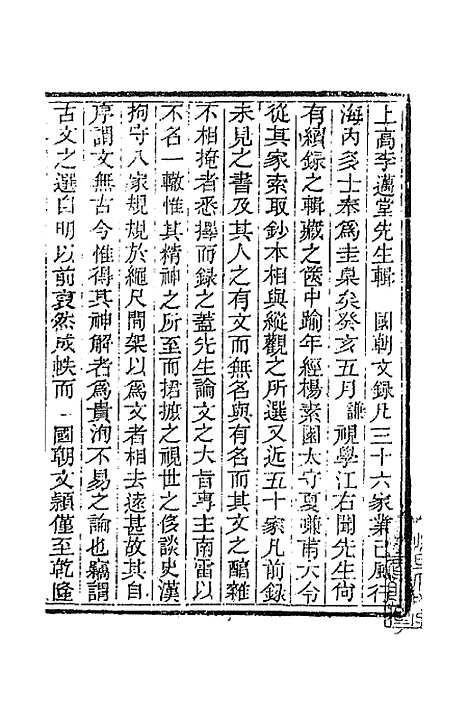 上高李邁堂先生輯　國朝文錄凡三十六家業已風行
海內多士奉爲圭臬矣癸亥五月謙視學江右聞先生尙
有續錄之輯藏之篋中踰年經楊素園太守夏嗛甫大令
從其家索取鈔本相與縱觀之所選又近五十家凡前錄
未見之書及其人之有文而無名與有名而其文之醇雜
不相掩者悉擇而錄之蓋先生論文之大旨專主南雷以
不名一轍惟其精神之所至而捃摭之視世之侈談史漢
拘守八家規規於繩尺間架以爲文者相去遠甚故其自
序謂文無古今惟得其神解者爲貴洵不易之論也竊謂
古文之選自明以前裒然成帙而　國朝文穎僅至乾隆